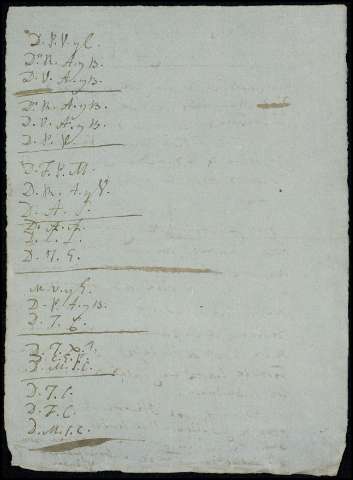 D. P. V. y C.
Dn. R. A. y B.
D. V. A. y B.
Dn. R. A. y B.
D. V. A. y B.
D. P. V.
D. F. P. M.
D. R. A. y V.
D. A. J.
D. A. A.
D. M. G.
M. V. y G.
D. P. A. y B.
D. T.
D. M. S. C.
D. T. C.
D. F. C.
D. M. S. C.